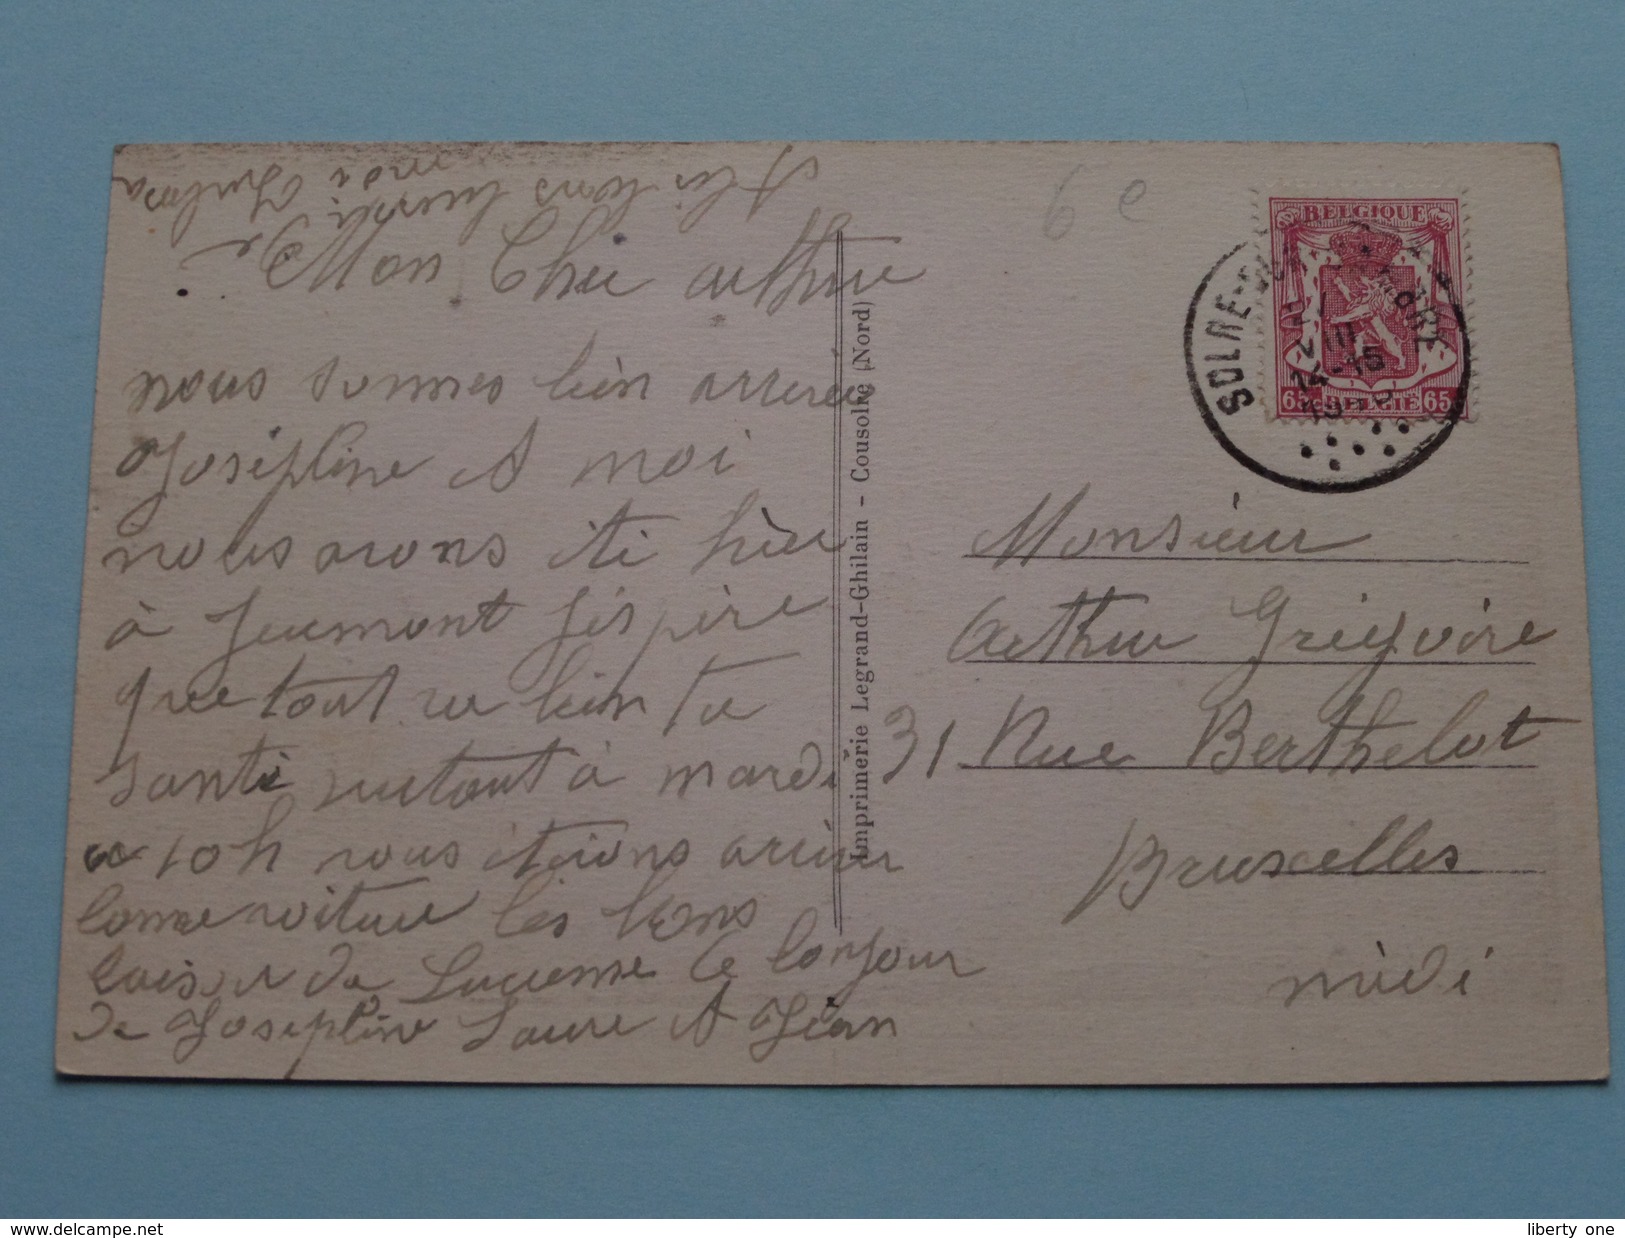 Mon Cher arthur
nous sommes bien arrivés
Josephine et moi
nous avons été hier
à Jeumont J'éspère
que tout va bien ta
santé surtout à mardi
a 10h nous étions
voiture les bons
de Lucienne le bonjour
de Josephine Laure et Jéan
moi
Imprimerie Legrand-Ghilain - Cousolre (Nord)
6 e
BELGIQUE
65 BELGIE 65
SOLRE-SUR
VIII
14-15
Monsieur
Arthur Grégoire
31 Rue Berthelot
Bruxelles
midi
www.delcampe.net
liberty_one